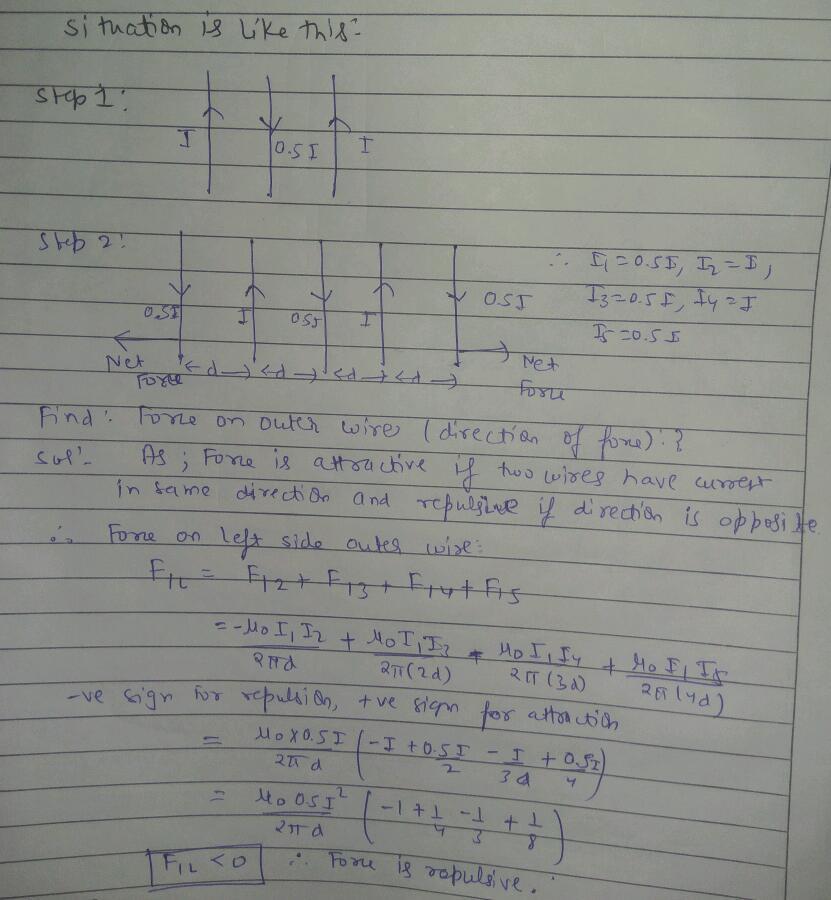 situation is like this:-
Step 1:
I
0.5I
I
Step 2:
∴ I1 = 0.5I, I2 = I,
0.5I I 0.5I I 0.5I I3 = 0.5I, I4 = I
I5 = 0.5I
Net Force
← d → ← d → ← d → ← d →
Net Force
Find: Force on outer wire (direction of force) : ?
Sol:- As ; Force is attractive if two wires have current
in same direction and repulsive if direction is opposite
∴ Force on left side outer wire:
F1L = F12 + F13 + F14 + F15
= -μ0 I1 I2 / 2πd + μ0 I1 I3 / 2π(2d) - μ0 I1 I4 / 2π(3d) + μ0 I1 I5 / 2π(4d)
-ve sign for repulsion, +ve sign for attraction
= μ0 x 0.5I / 2πd (-I + 0.5I / 2 - I / 3d + 0.5I / 4)
= μ0 0.5I² / 2πd (-1 + 1/4 - 1/3 + 1/8)
F1L < 0 ∴ Force is repulsive.